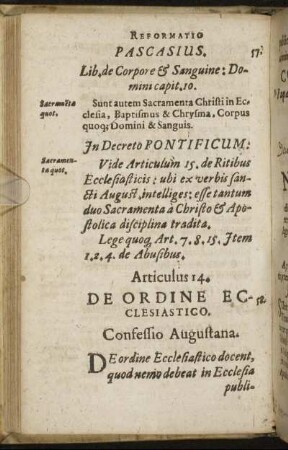 REFORMATIO
PASCASIUS. 57.
Lib. de Corpore & Sanguine: Do-
mini capit. 10.
Sacramēta
quot.
Sunt autem Sacramenta Christi in Ec-
clesia, Baptismus & Chrysma, Corpus
quoq; Domini & Sanguis.
In Decreto PONTIFICUM:
Sacramen-
ta quot.
Vide Articulum 15. de Ritibus
Ecclesiasticis: ubi ex verbis san-
cti August. intelliges: esse tantum
duo Sacramenta à Christo & Apo-
stolica disciplina tradita.
Lege quoq; Art. 7. 8. 15. Item
1. 2. 4. de Abusibus.
Articulus 14.
DE ORDINE EC- 58.
CLESIASTICO.
Confessio Augustana.
DE ordine Ecclesiastico docent,
quod nemo debeat in Ecclesia
publi-